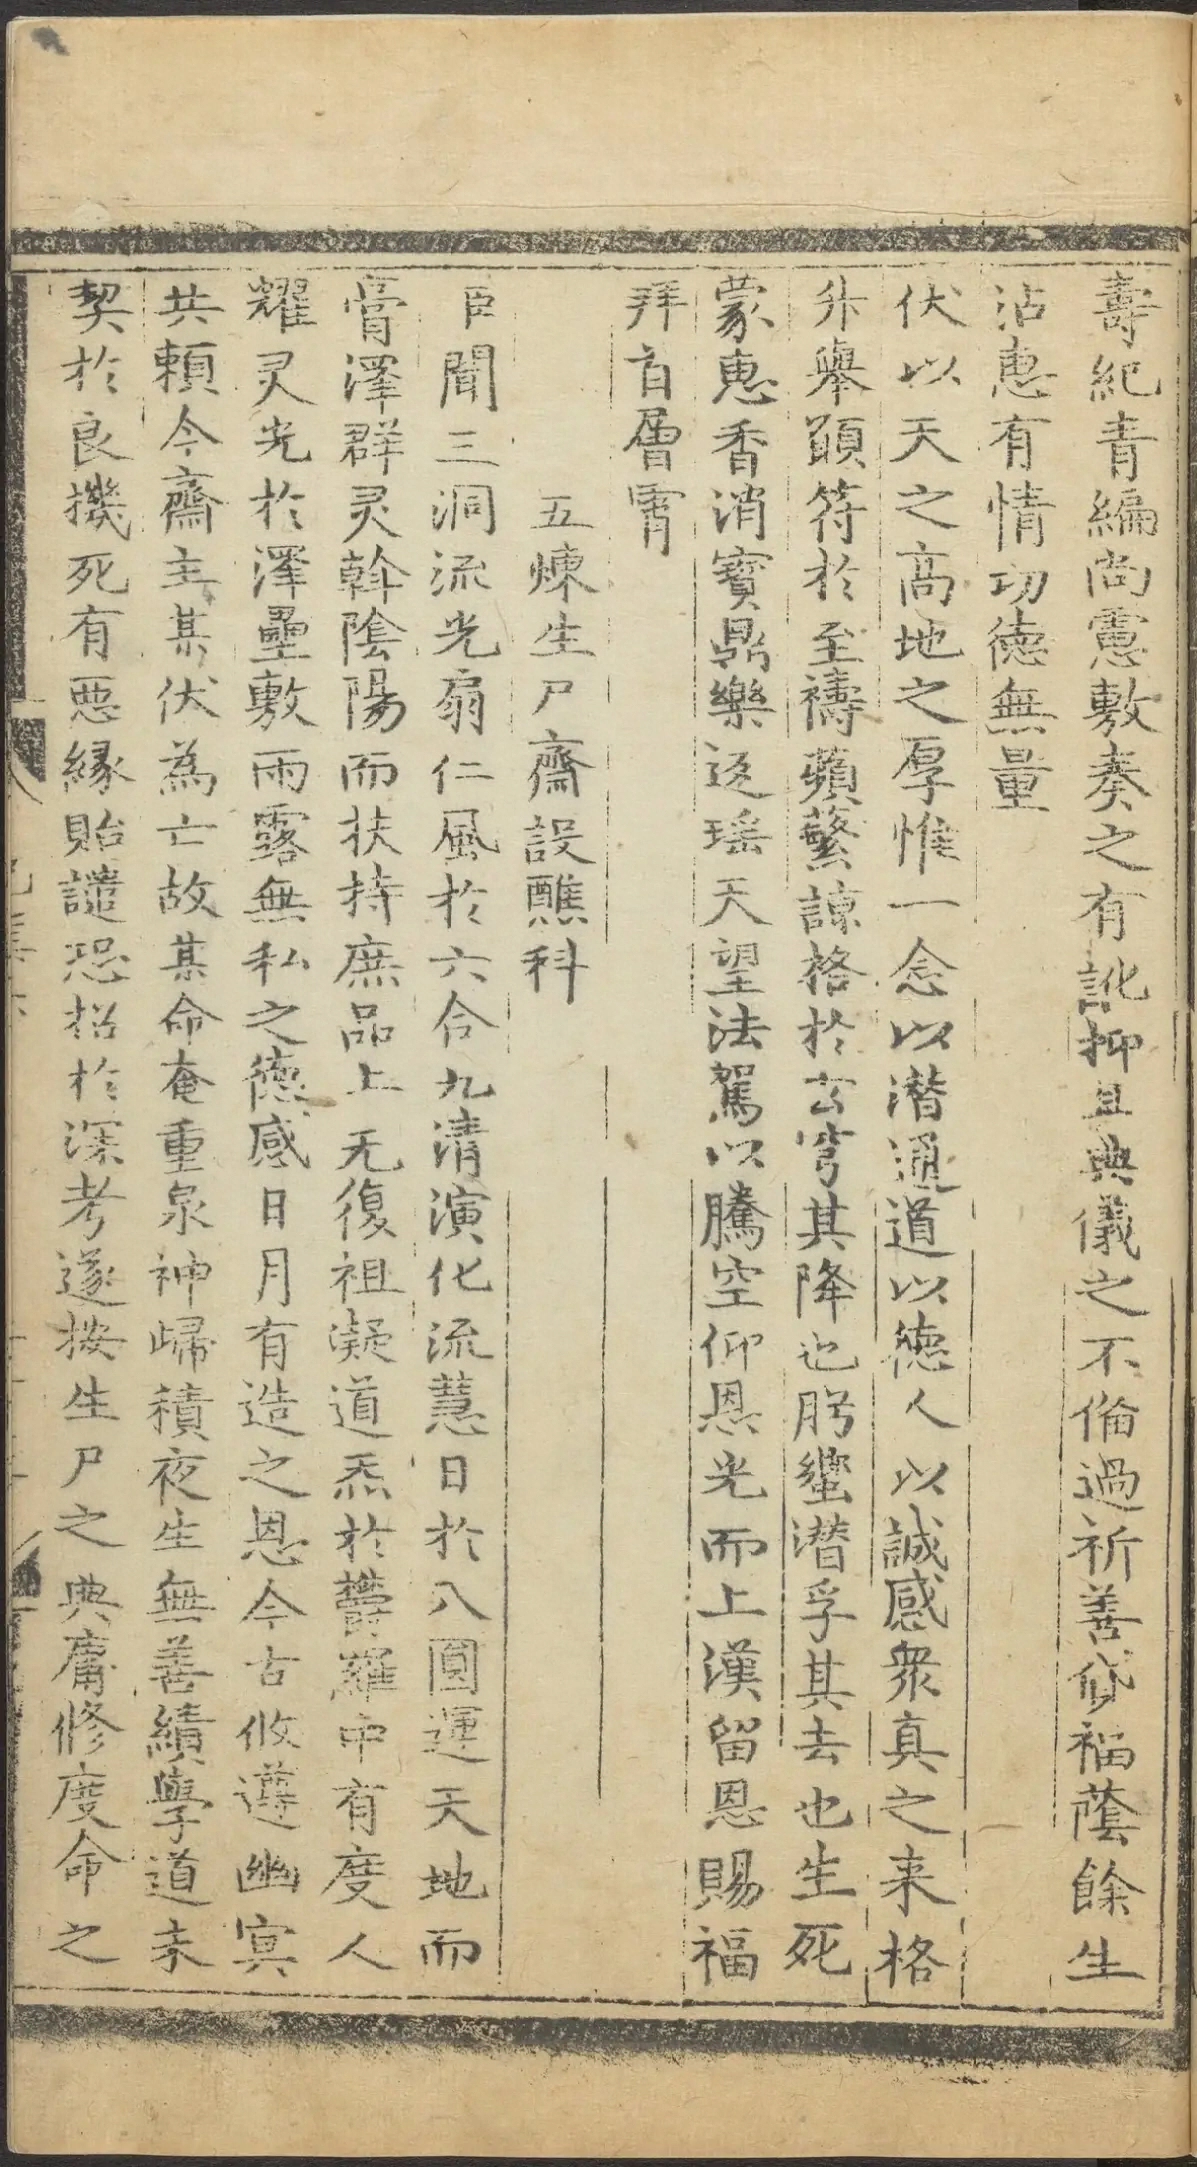 壽紀青編尚慮敷奏之有訛抑且典儀之不倫過祈善貸福蔭餘生
沾惠有情功德無量
伏以天之高地之厚惟一念以潜通道以德人以誠感衆真之来格
升舉頤符於至禱蘋蘩諒格於玄穹其降也肹蠁潜孚其去也生死
蒙惠香消寳鼎樂返瑶天望法駕以騰空仰恩光而上漢留恩賜福
拜首層霄
五煉生尸齋設醮科
臣聞三洞流光扇仁風於六合九清演化流慧日於八圓運天地而
膏澤群灵斡陰陽而扶持庶品上无復祖凝道炁於欝羅中有度人
耀灵光於澤壘敷雨露無私之德感日月有造之恩今古攸遵幽冥
共頼今齋主某伏為亡故某命奄重泉神歸積夜生無善績學道未
契於良機死有惡縁貽譴恐招於深考遂按生尸之典庸修度命之